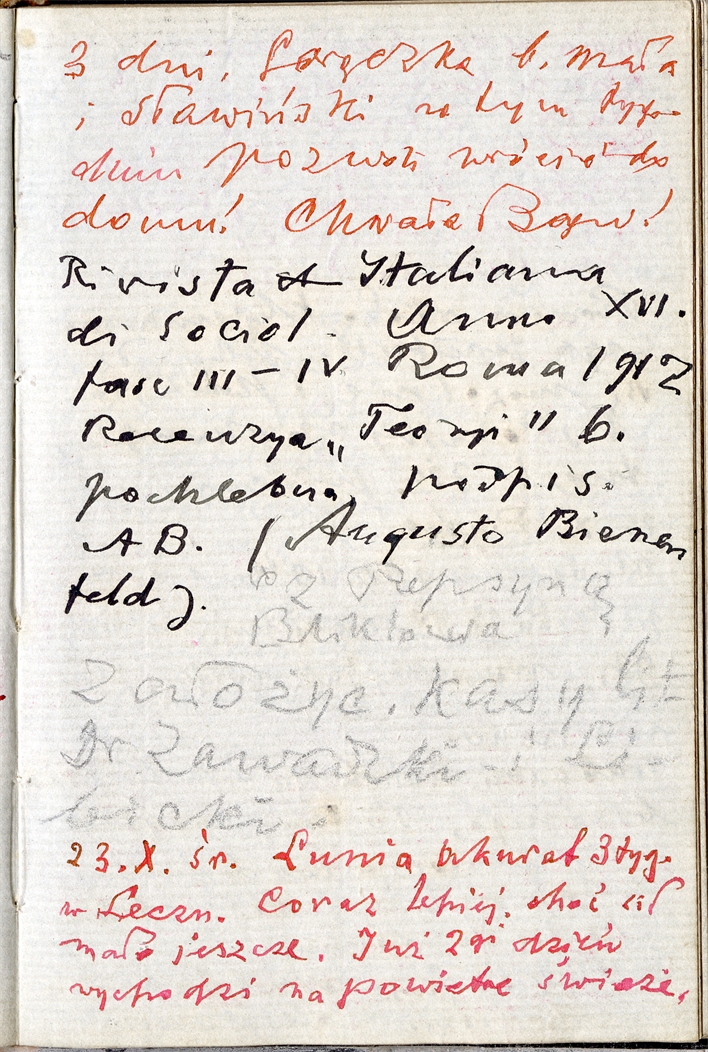 3 dni. Gorączka b. mała
i Sławiński w tym tygo-
dniu pozwoli wrócić do
domu! Chwała Bogu!
Rivista Italiana
di Sociol. Anno XVI.
fasc III – IV Roma 1912
Recenzya „Teoryi" b.
pochlebna, podpis.
AB. (Augusto Bienen
feld).
z
Założyć. Kasy
Dr Zawadzki i
23. X. śr. Lunia akurat 3 tyg.
w Leczn. Coraz lepiej, choć sił
mało jeszcze. Już 2gi dzień
wychodzi na powietrze świeże.